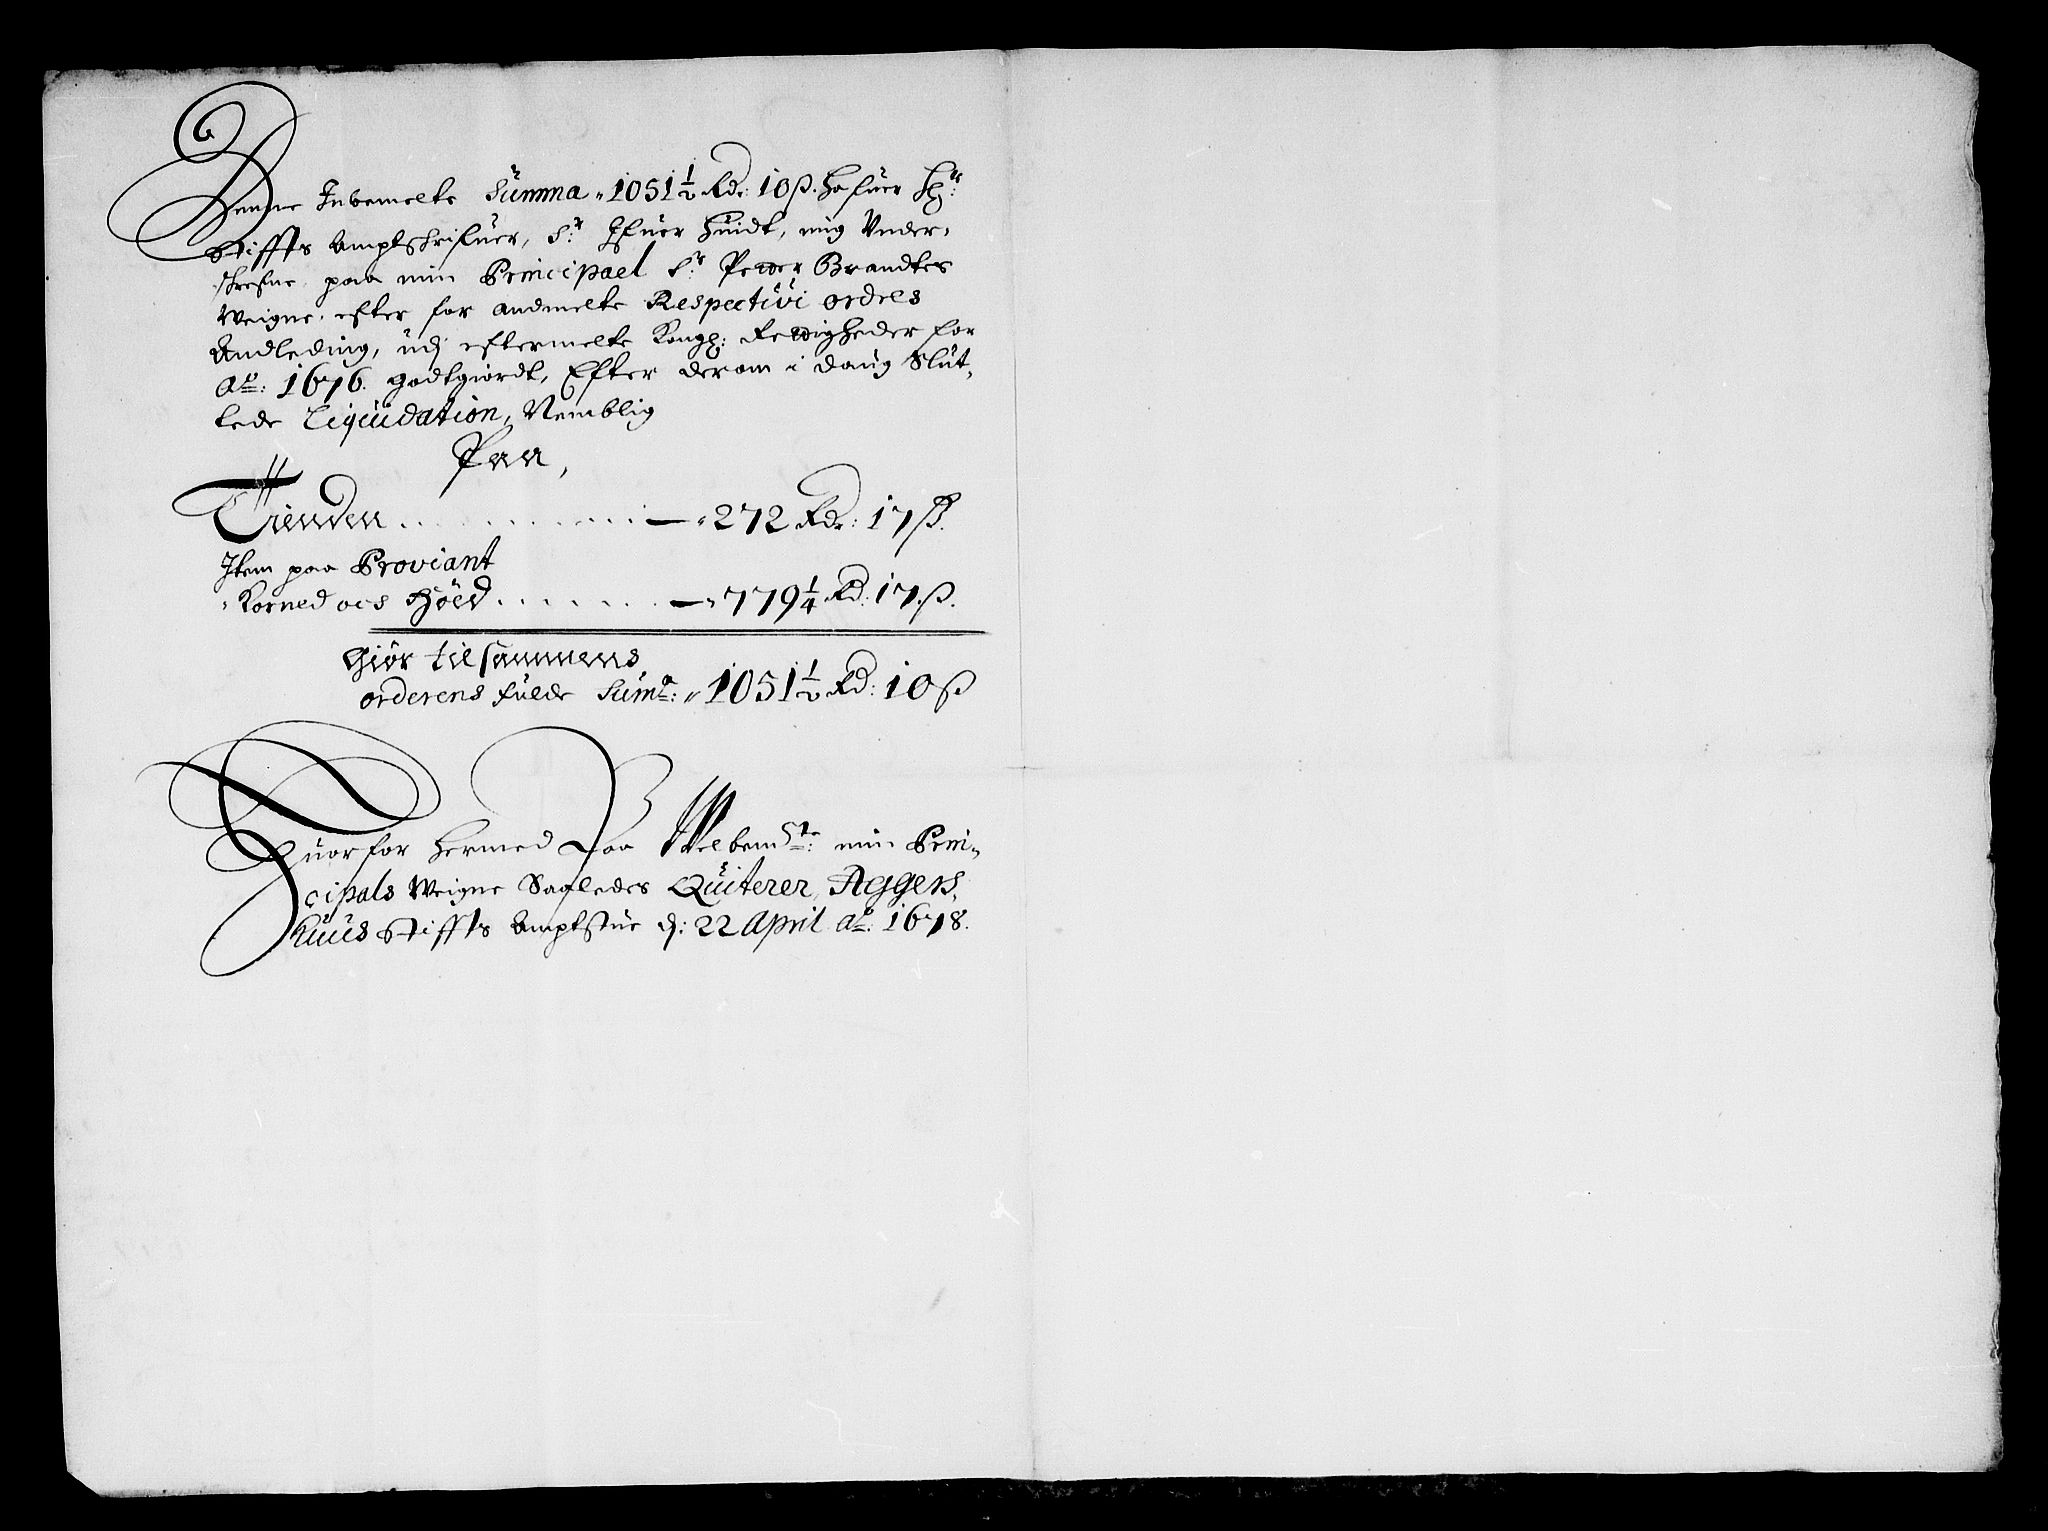 Denne Indbemelte Summa 1051½ Rdr: 10 ß. hafuer Hr:
Stiffts Ambtschrifuer, Sr: Ifuer Huidt, mig Under-
skrefne paa min Principael Sr: Peder Brandtes
Weigne, efter for andmelte Respectivi ordels
Andleding, udj eftermelte Kongl: Rettigheder for
Ao: 1676. godtgiordt, Efter derom i daug Slut-
tede Liquidation, Nemblig
Paa,
Tienden . . . . . . . . . . . — 272 Rdr: 17 ß.
Item paa Proviant
Korned ocs Höed . . . . . . . — 779¼ Rd: 17. ß.
Giör tilsammens
orderens fulde Suma: 1051½ Rd: 10 ß
Huorfor hermed Paa Welbemste: min Prin-
cipals Weigne Sagledes Quiterer, Aggers-
huus Stiffts Ambtstue d: 22 April Ao: 1678.